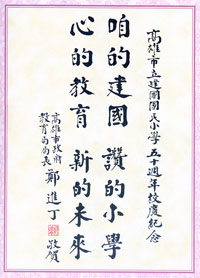 高雄市立建國國民小學五十週年校慶紀念
咱的建國 讚的小學
心的教育 新的未來
高雄市政府
教育局局長 鄭進丁 敬賀